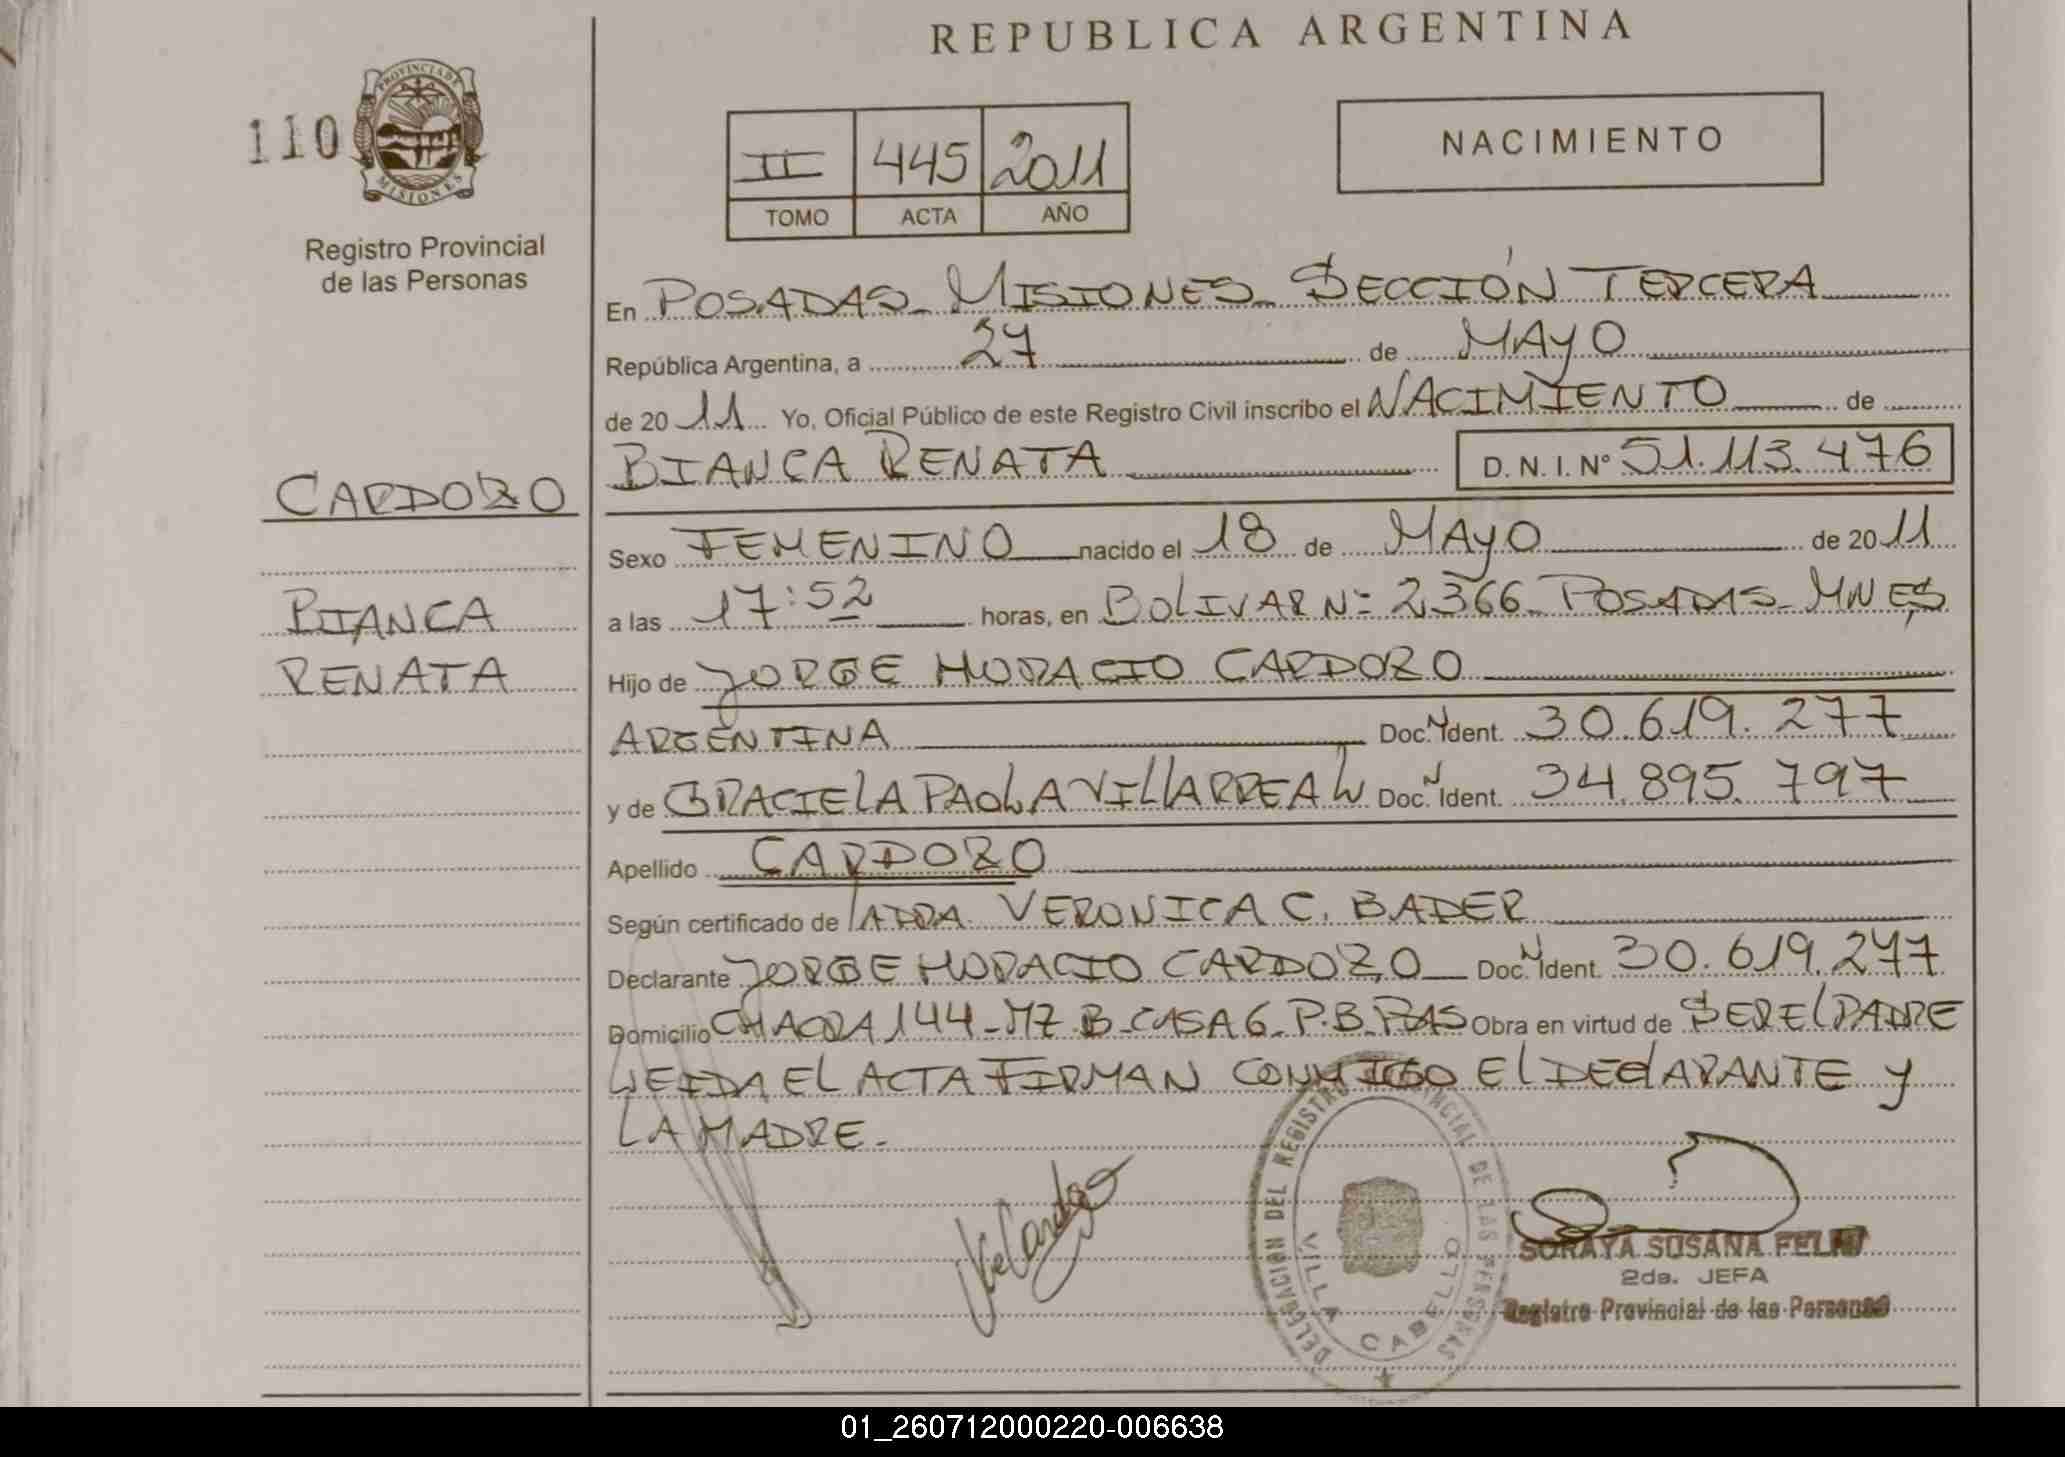 REPUBLICA ARGENTINA
110
PROVINCIA DE MISIONES
Registro Provincial
de las Personas
II 445 2011
TOMO ACTA AÑO
NACIMIENTO
En POSADAS - MISIONES - SECCIÓN TERCERA
República Argentina, a 27 de MAYO
de 20 11 Yo, Oficial Público de este Registro Civil inscribo el NACIMIENTO de
BIANCA RENATA D.N.I. Nº 51.113.476
CARDOZO
BIANCA
RENATA
Sexo FEMENINO nacido el 18 de MAYO de 20 11
a las 17:52 horas, en BOLIVAR Nº 2366 - POSADAS - MNES
Hijo de JORGE HORACIO CARDOZO
ARGENTINA Doc. N Ident. 30.619.277
y de GRACIELA PAOLA VILLARREAL Doc. N Ident. 34.895.797
Apellido CARDOZO
Según certificado de VERONICA C. BADER
Declarante JORGE HORACIO CARDOZO Doc. N Ident. 30.619.277
Domicilio CHACRA 144 - MZ B - CASA 6 - P.B. PDAS Obra en virtud de SER EL PADRE
LEIDA EL ACTA FIRMAN CONMIGO EL DECLARANTE Y
LA MADRE.
DELEGACION DEL REGISTRO PROVINCIAL DE LAS PERSONAS
VILLA CABELLO
SORAYA SUSANA
2da. JEFA
Registro Provincial de las Personas
01_260712000220-006638